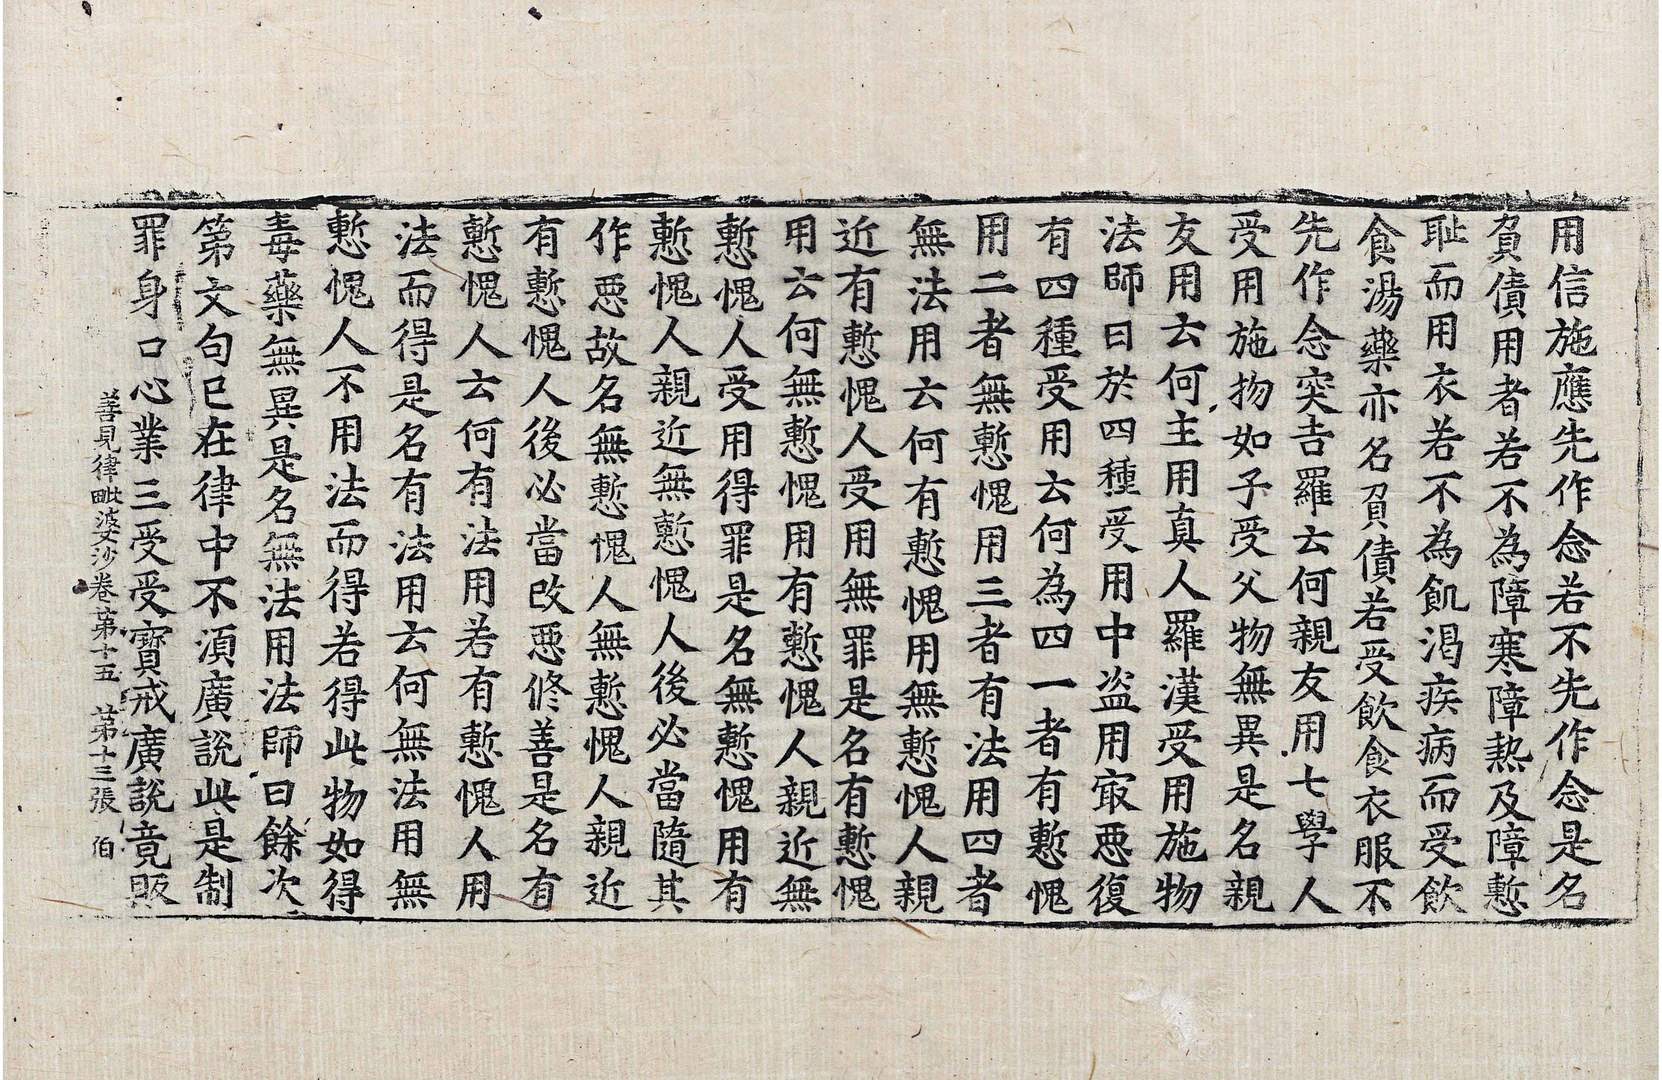 用信施應先作念若不先作念是名
負債用者若不為障寒障熱及障慙
耻而用衣若不為飢渴疾病而受飲
食湯藥亦名負債若受飲食衣服不
先作念突吉羅云何親友用七學人
受用施物如子受父物無異是名親
友用云何主用真人羅漢受用施物
法師曰於四種受用中盗用㝡悪復
有四種受用云何為四一者有慙愧
用二者無慙愧用三者有法用四者
無法用云何有慙愧用無慙愧人親
近有慙愧人受用無罪是名有慙愧
用云何無慙愧用有慙愧人親近無
慙愧人受用得罪是名無慙愧用有
慙愧人親近無慙愧人後必當隨其
作悪故名無慙愧人無慙愧人親近
有慙愧人後必當改悪修善是名有
慙愧人云何有法用若有慙愧人用
法而得是名有法用云何無法用無
慙愧人不用法而得若得此物如得
毒藥無異是名無法用法師曰餘次
第文句已在律中不湏廣說此是制
罪身口心業三受受寶戒廣說竟販
善見律毗婆沙卷第十五 第十三張 伯